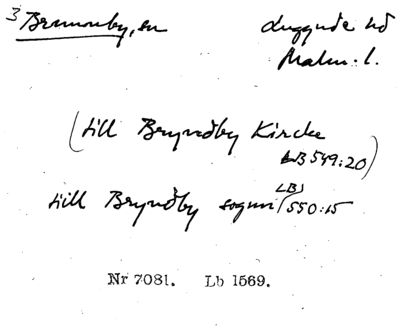 3 Brunnby, sn Luggude hd
Malm. l.
(till Bryndby Kircke
LB 549:20)
till Bryndby sognn LB1 550:15
Nr 7081. Lb 1569.